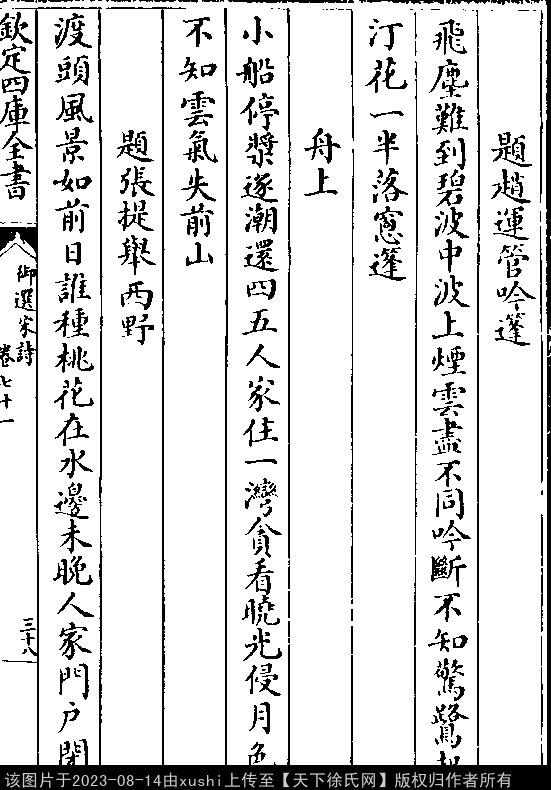 題趙運管吟篷
飛塵難到碧波中波上煙雲盡不同吟斷不知驚鷺起
汀花一半落窻篷
舟上
小船停槳逐潮還四五人家住一灣貪看曉光侵月色
不知雲氣失前山
題張提舉西野
渡頭風景如前日誰種桃花在水邊未晚人家門户閉
欽定四庫全書
御選宋詩
卷七十一
三十八
该图片于2023-08-14由xushi上传至【天下徐氏网】版权归作者所有